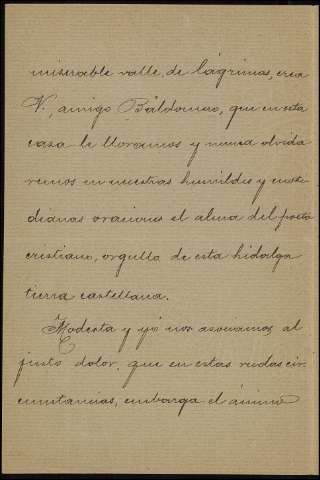 miserable valle, de lágrimas, crea
V., amigo Baldomero, que en esta
casa le lloramos y nunca olvida
remos en nuestras humildes y coti
dianas oraciones el alma del poeta
cristiano, orgullo de esta hidalga
tierra castellana.
Modesta y yo nos asociamos al
justo dolor, que en estas rudas cir
cunstancias, embarga el ánimo